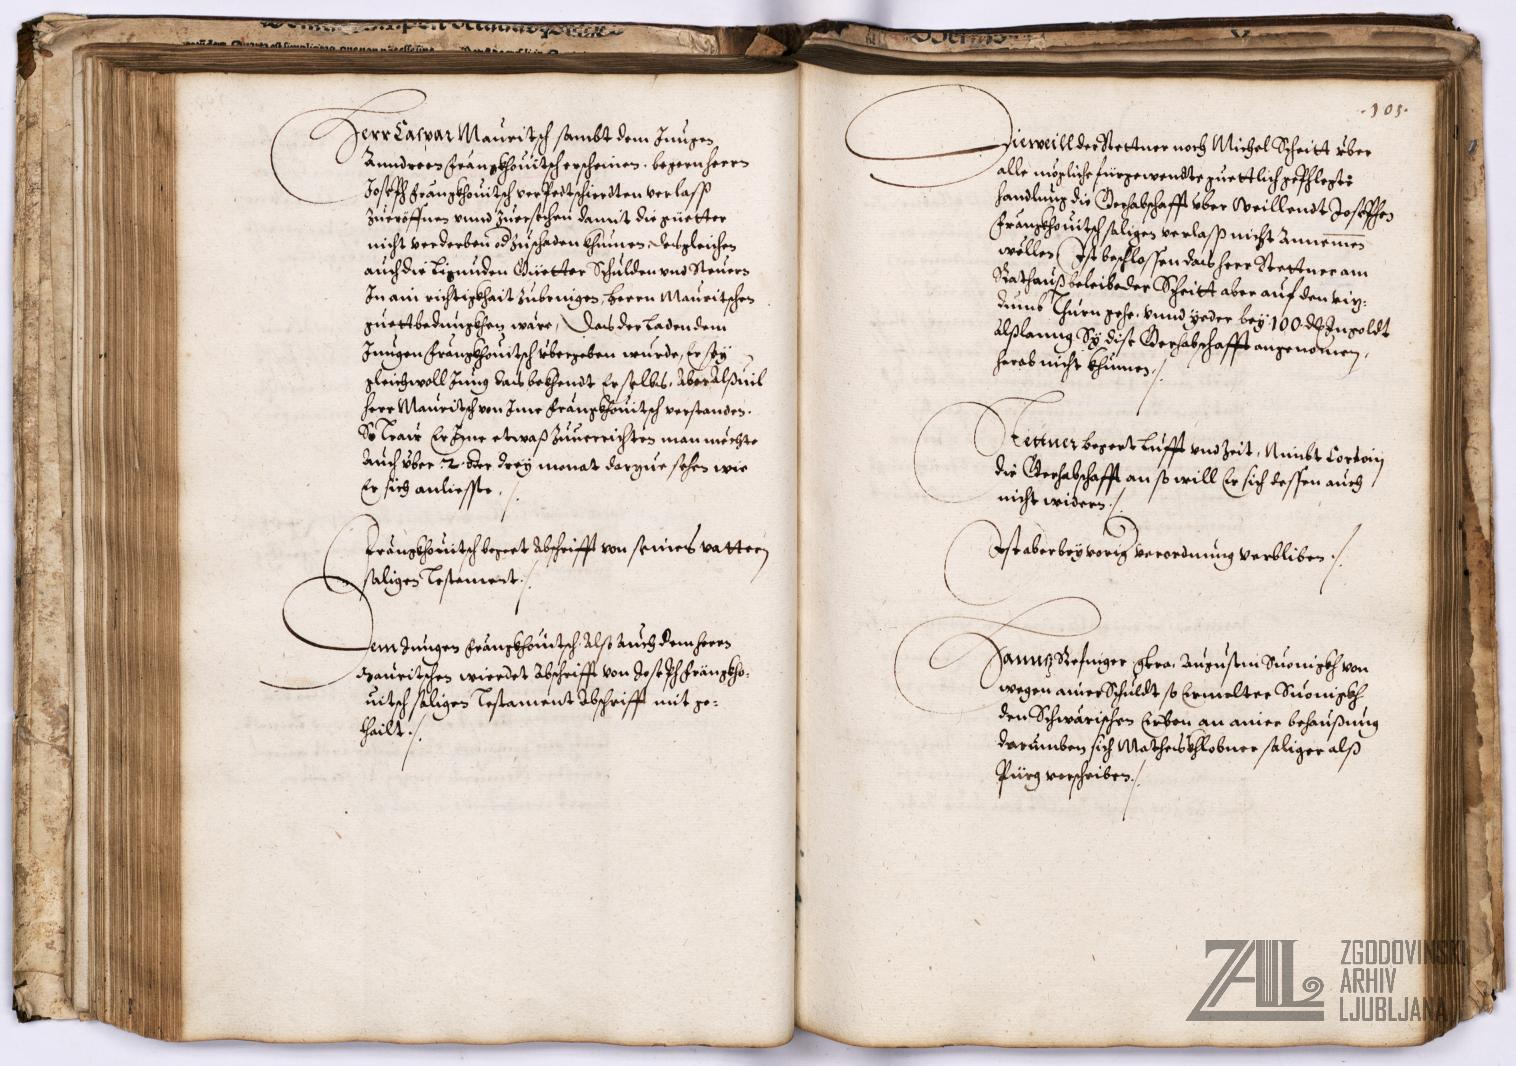 Herr Caspar Mauritsch sambt dem Jungen
Anndreen Frängkhouitsch erscheinen, begern herrn
Joseph Frängkhouitsch verPettschierdten verlass
zueröffnen vnnd zuersechen damit die güetter
nicht verderben od zuschaden khumen, desgleichen
auch die Ligunden Güetter Schulden vnd Steuern
In ain richtigkhait zubringen, herrn Mauritschen
guettbedungkhen wäre, Das der Laden dem
Jungen Frängkhouitsch vbergeben wurde, Er sey
gleichwoll Jung das bekhendt Er selbs, Aber Alßuil
herr Mauritsch von Ime Frängkhouitsch verstanden.
So Traue Er Ime etwaß zuuerrichten man mechte
Auch über 2 oder drey monat darzue sehen wie
Er sich anliesste.
Frängkhouitsch begert Abschrifft von seines vattern
saligen Testament.
Dem Jungen Frängkhouitsch Alß Auch dem herrn
Mauritschen wierdet Abschrifft von Joseph Frängkho-
uitsch saligen Testament Abschrifft mit ge-
thailt.
.101.
Dieweill der Stettner noch Michel Scheitt über
alle mögliche fürgewendte guettlich gephlegte
handlung die Gerhabschafft über Weillendt Josephen
Frängkhouitsch saligen verlaß nicht Annemen
wöllen, Ist beschlossen das herr Stettner am
Rathauß beleibe der Scheitt aber auf den viz-
dumb Thurn gehe, vnnd yeder bey 100 Ingoldt
Alßlanng Sy dise Gerhabschafft angenomen,
herab nicht khumen.
Stettner begert Lufft vnd Zeit, Nimbt
die Gerhabschafft an so will Er sich dessen auch
nicht widern.
Ist aber bey voriger verordnung verbliben.
Hannß Resinger Augustin Suonigkh von
wegen ainer Schuldt so Ermelter Suonigkh
den Schwärischen Erben an ainer behaußung
darumben sich Matheus Khlobner saliger alß
Pürg verschriben.
ZAL
ZGODOVINSKI
ARHIV
LJUBLJANA